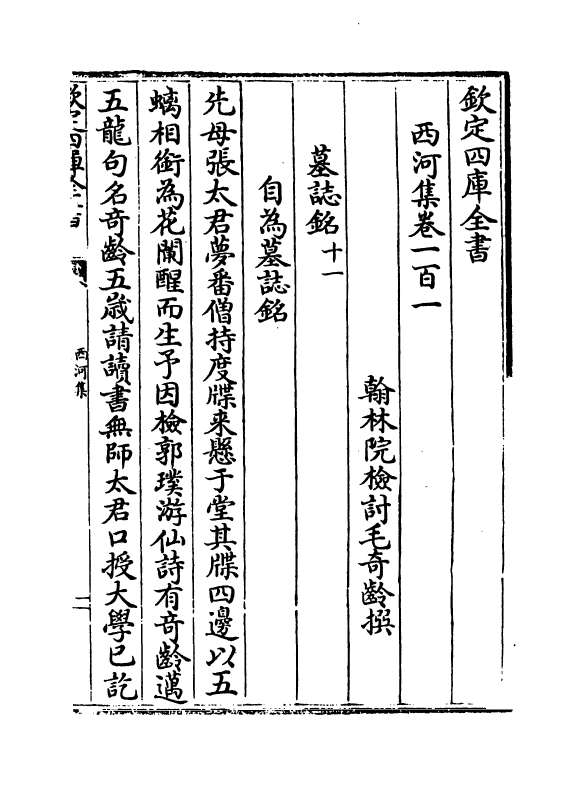 欽定四庫全書
西河集卷一百一
翰林院檢討毛奇齡撰
墓誌銘十一
自為墓誌銘
先母張太君夢番僧持度牒来懸于堂其牒四邊以五
螭相銜為花闌醒而生予因檢郭璞游仙詩有奇齡邁
五龍句名奇齡五歲請讀書無師太君口授大學已訖
西河集